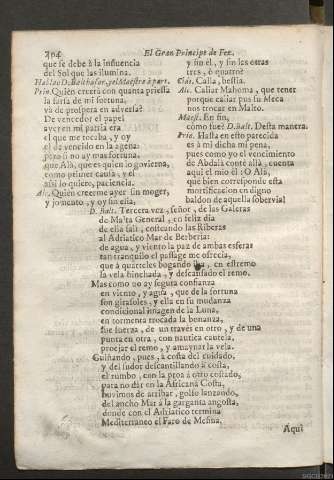 294 El Gran Principe de Fez.
que se debe à la influencia
del Sol que las ilumina.
Hablan D. Balthasar, y el Maestro à parte.
Prin. Quièn creerà con quanta priessa
la farsa de mi fortuna,
và de prospera en adversa?
De vencedor el papel
ayer en mi patria era
el que me tocaba, y oy
el de vencido en la agena:
pero si no ay mas fortuna,
que Alà, que es quien lo govierna,
como primer causa, y el
assi lo quiere, paciencia.
Alc. Quièn creerme ayer sin moger,
y jomento, y oy sin ella,
y sin èl, y sin les otras
tres, ò quatro?
Cid. Calla, bestia.
Alc. Callar Mahoma, que tener
porque callar pus su Meca
nos trocar en Malto.
Maest. En fin,
còmo fue? D. Balt. Desta manera.
Prin. Hasta en esto parecida
es à mi dicha mi pena,
pues como yo el vencimiento
de Abdalà contè allà, cuenta
aqui el mio èl: O Alà,
que bien corresponde esta
mortificacion en digno
baldon de aquella sobervia!
D. Balt. Tercera vez, señor, de las Galeras
de Malta General, en feliz dia
de ella salì, costeando las Riberas
al Adriatico Mar de Berberia:
de agua, y viento la paz de ambas esferas
tan tranquilo el passage me ofrecia,
que à quarteles bogando iba, en estremo
la vela hinchada, y descansado el remo.
Mas como no ay segura confianza
en viento, y agua, que de la fortuna
son girasoles, y ella en su mudanza
condicional imagen de la Luna,
en tormenta trocada la bonanza,
fue fuerza, de un travès en otro, y de una
punta en otra, con nautica cautela,
proejar el remo, y amaynar la vela.
Guiñando, pues, à costa del cuidado,
y del sudor descantillando à costa,
el rumbo, con la proa à otro costado,
para no dàr en la Africana Costa,
huvimos de arribar, golfo lanzando,
del ancho Mar à la garganta angosta,
donde con el Adriatico termina
Mediterraneo el Faro de Mesina.
Aqui